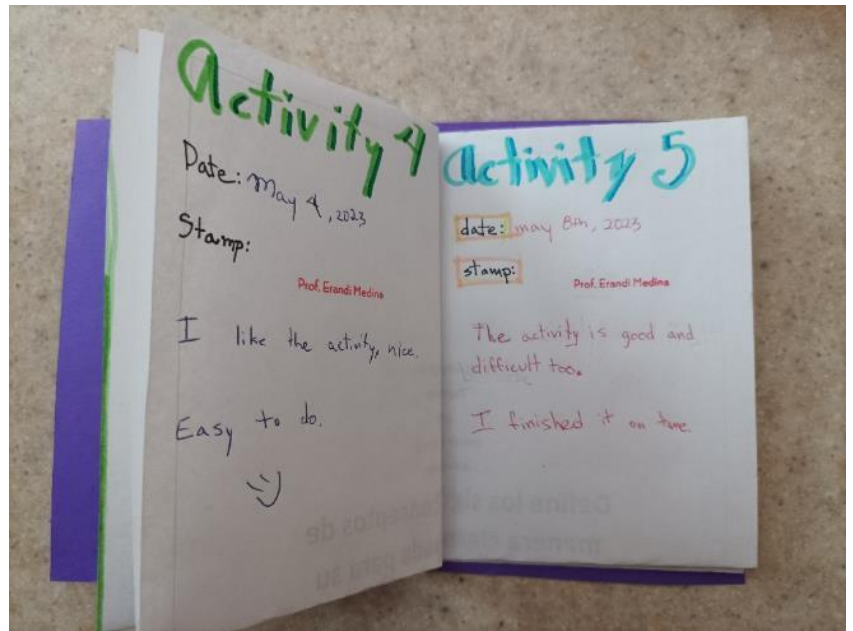 Activity 4
Date: May 4, 2023
Stamp:
Prof. Erandi Medina
I like the activity, nice.
Easy to do.
Activity 5
date: may 8th, 2023
stamp:
Prof. Erandi Medina
The activity is good and
difficult too.
I finished it on time.
Define los si conceptos de
manera
para su